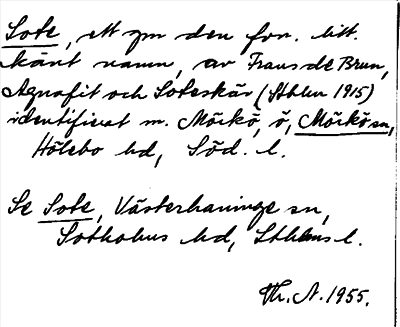 Sote, ett gm den forn. litt.
känt namn, av Frans de Brun,
Agnafit och Soteskär (Sthlm 1915)
identifierat m. Mörkö, ö, Mörkö sn,
Hölebo hd, Söd. l.
Se Sote, Västerhaninge sn,
Sotholms hd, Sthlms l.
Th. A. 1955.